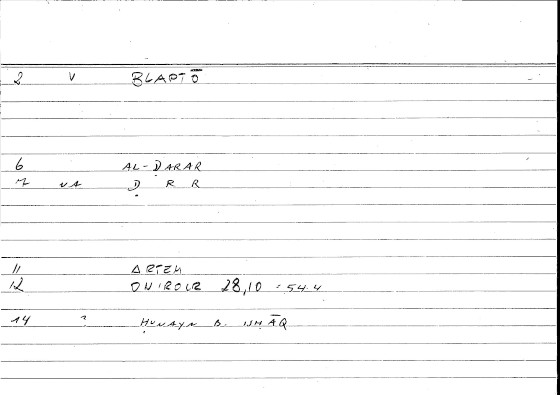 2 V BLAPTŌ
6 AL-ḌARAR
7 NA Ḍ R R
11 ARTEM
12 ONIROCR 28,10 = 54.4
14 ? ḤUNAYN B. ISḤĀQ